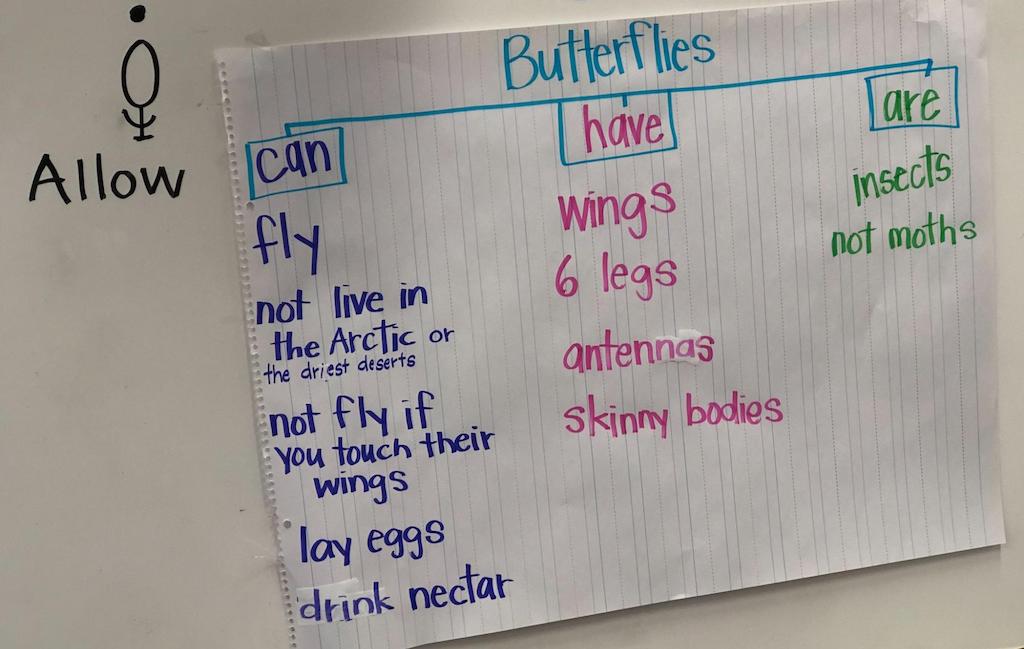 Allow
Butterflies
can
fly
not live in
the Arctic or
the driest deserts
not fly if
you touch their
wings
lay eggs
drink nectar
have
wings
6 legs
antennas
skinny bodies
are
insects
not moths